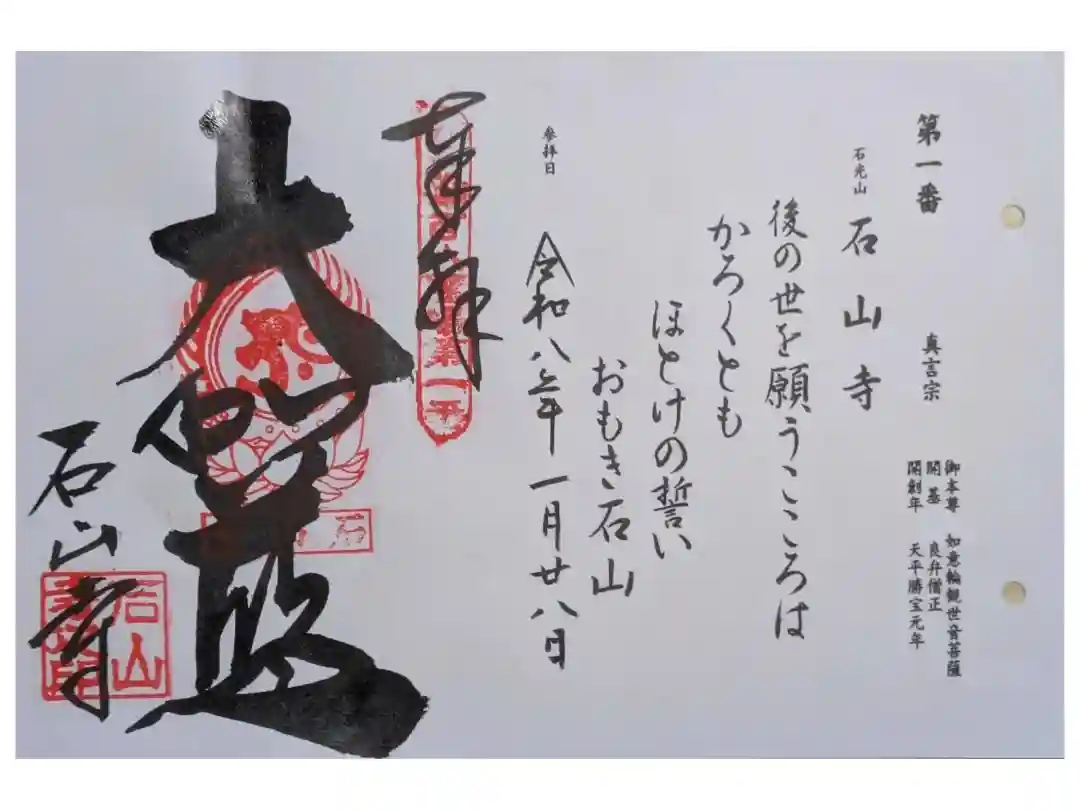 第一番　真言宗
御本尊　如意輪観世音菩薩
開基　良弁僧正
開創年　天平勝宝元年
石光山　石山寺
後の世を願うこころは
かろくとも
ほとけの誓い
おもき石山
参拝日　令和八年一月廿八日
奉拝
大伽藍
石山寺